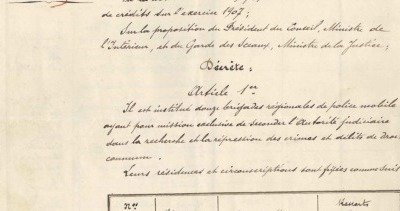 de crédits sur l'exercice 1907;
Sur la proposition du Président du Conseil, Ministre de
l'Intérieur, et du Garde des Sceaux, Ministre de la Justice;
Décrète:
Article 1er
Il est institué douze brigades régionales de police mobile
ayant pour mission exclusive de seconder l'Autorité judiciaire
dans la recherche et la répression des crimes et délits de droit
commun.
Leurs résidences et circonscriptions sont fixées comme suit
Nos Ressorts